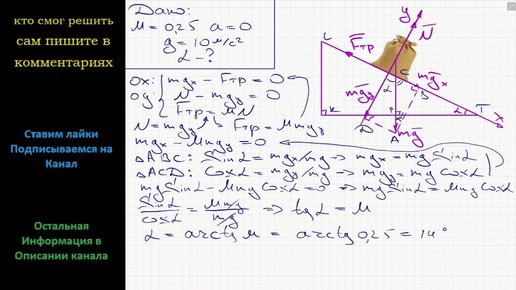 кто смог решить
сам пишите в
комментариях
Ставим лайки
Подписываемся на
Канал
Остальная
Информация в
Описании канала
Дано:
μ = 0,25 a = 0
g = 10 м/с²
α - ?
ox: mgx - Fтр = 0
oy: N - mgy = 0
Fтр = μN
N = mgy Fтр = μmgy
mgx - μmgy = 0
ΔABC: sinα = mgx/mg ⇒ mgx = mg sinα
ΔACD: cosα = mgy/mg ⇒ mgy = mg cosα
mg sinα - μmg cosα = 0 ⇒ mg sinα = μmg cosα
sinα/cosα = μmg/mg ⇒ tgα = μ
α = arctg μ = arctg 0,25 = 14°
y
N
L
Fтр
C
mgx
mgy
α
B
K
P
α
T
x
D
A
mg